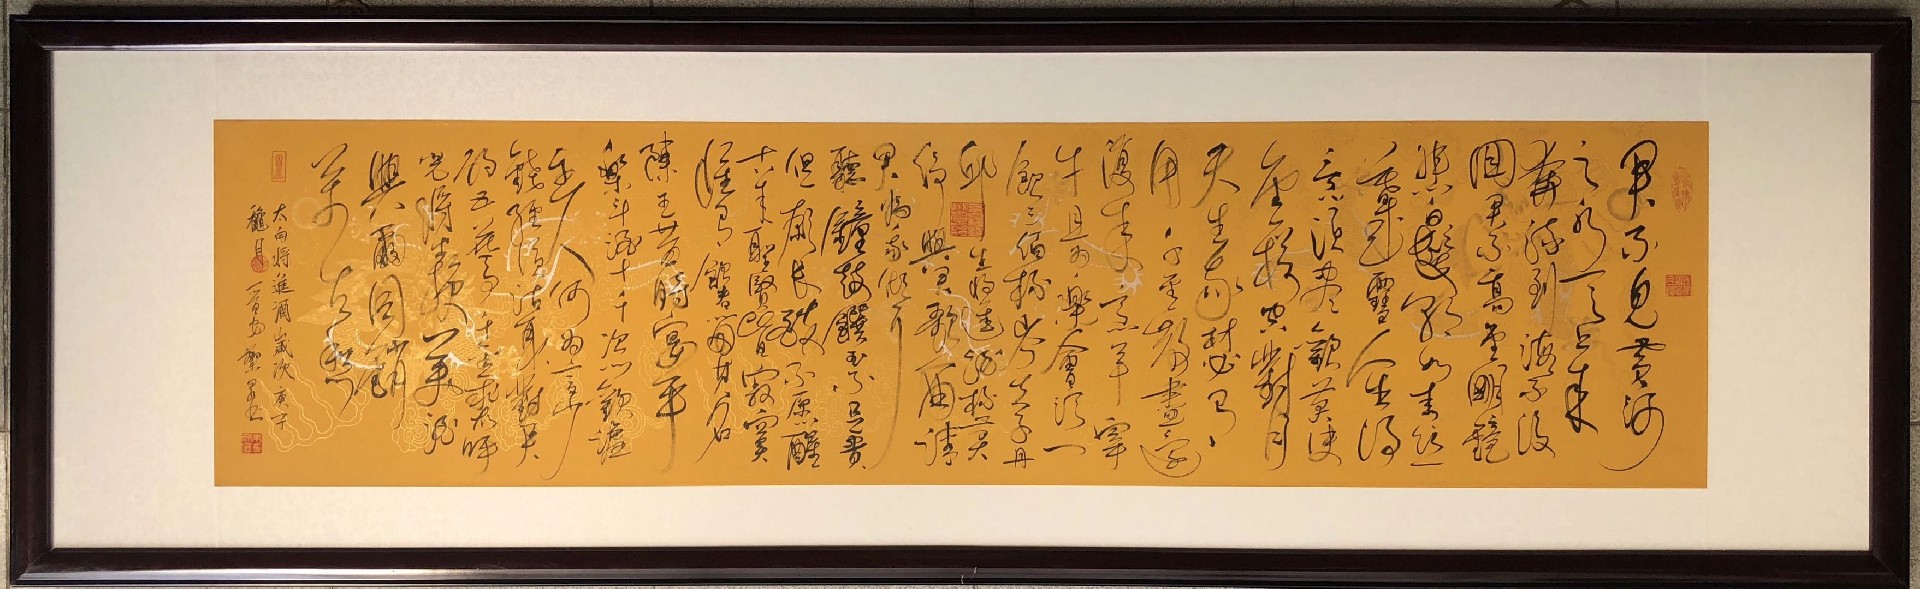 君不見黃河
之水天上來
奔流到海不復
回君不見高堂明鏡
悲白髮朝如青絲
暮成雪人生得
意須盡歡莫使
金樽空對月
天生我材必有
用千金散盡還
復來烹羊宰
牛且為樂會須一
飲三百杯岑夫子丹
邱生將進酒杯莫
停與君歌一曲請
君為我傾耳
聽鐘鼓饌玉不足貴
但願長醉不願醒
古來聖賢皆寂寞
惟有飲者留其名
陳王昔時宴平
樂斗酒十千恣歡謔
主人何為言少
錢徑須沽取對君
酌五花馬千金裘呼
兒將出換美酒
與爾同銷
萬古愁
太白將進酒歲次庚子
穐月